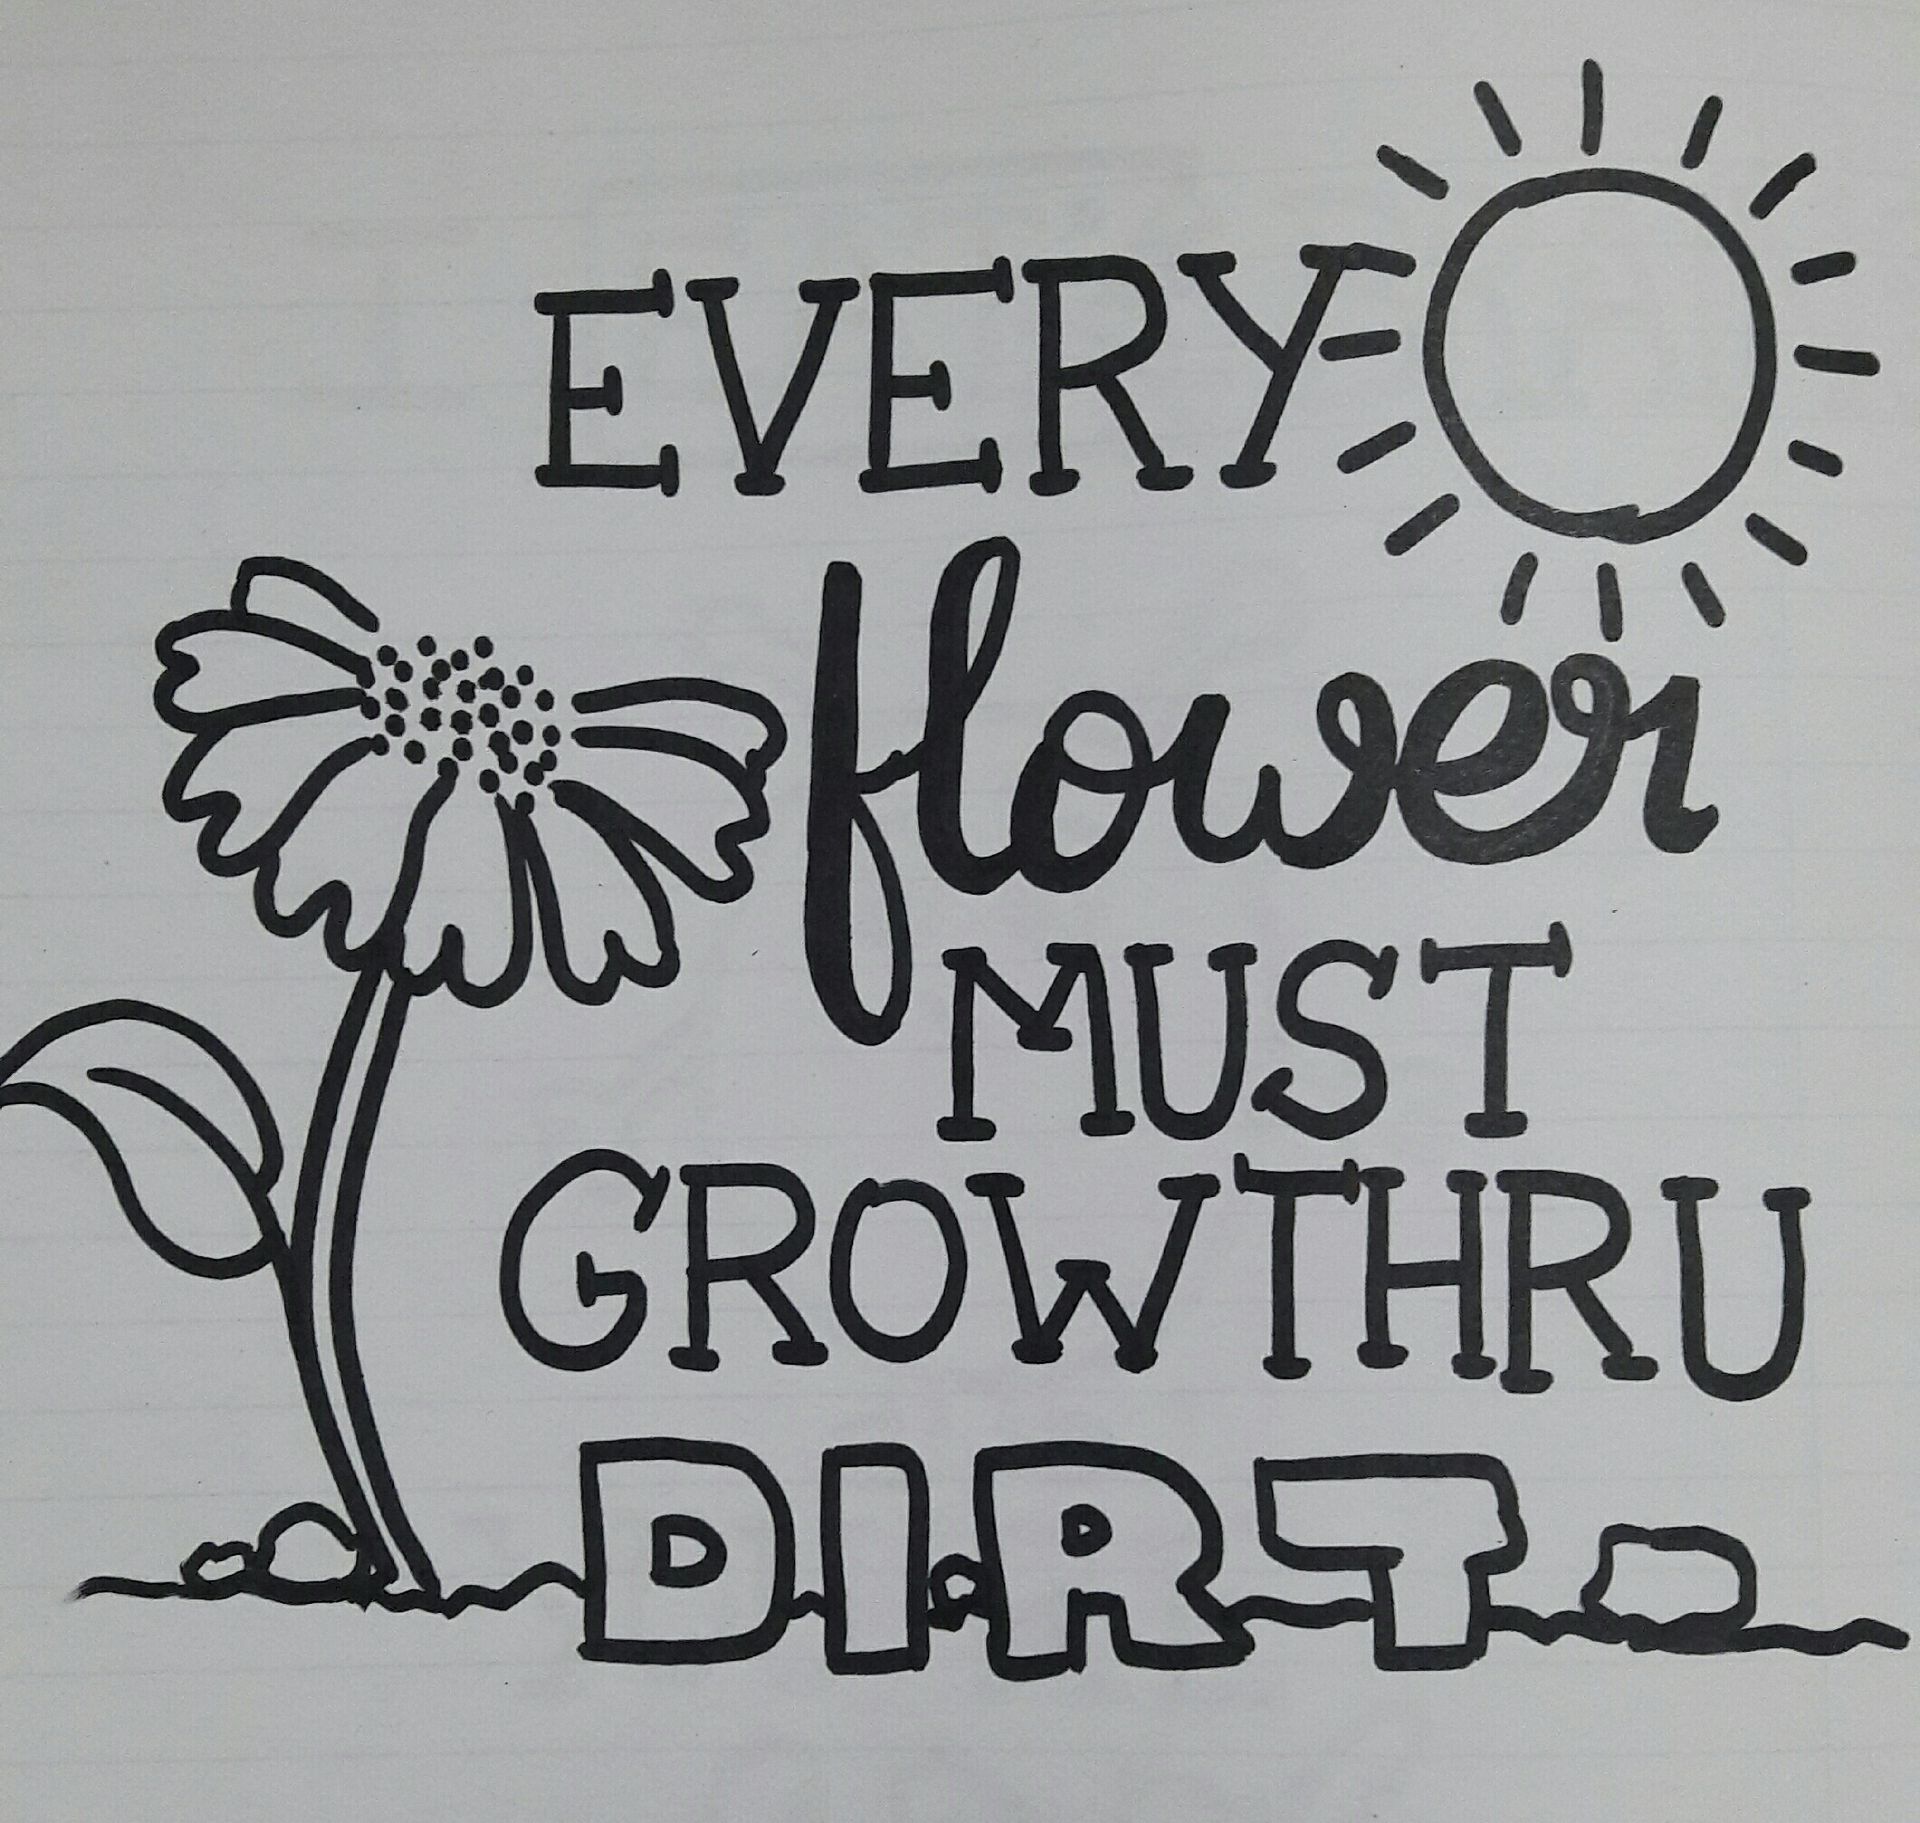 EVERY
flower
MUST
GROW THRU
DIRT